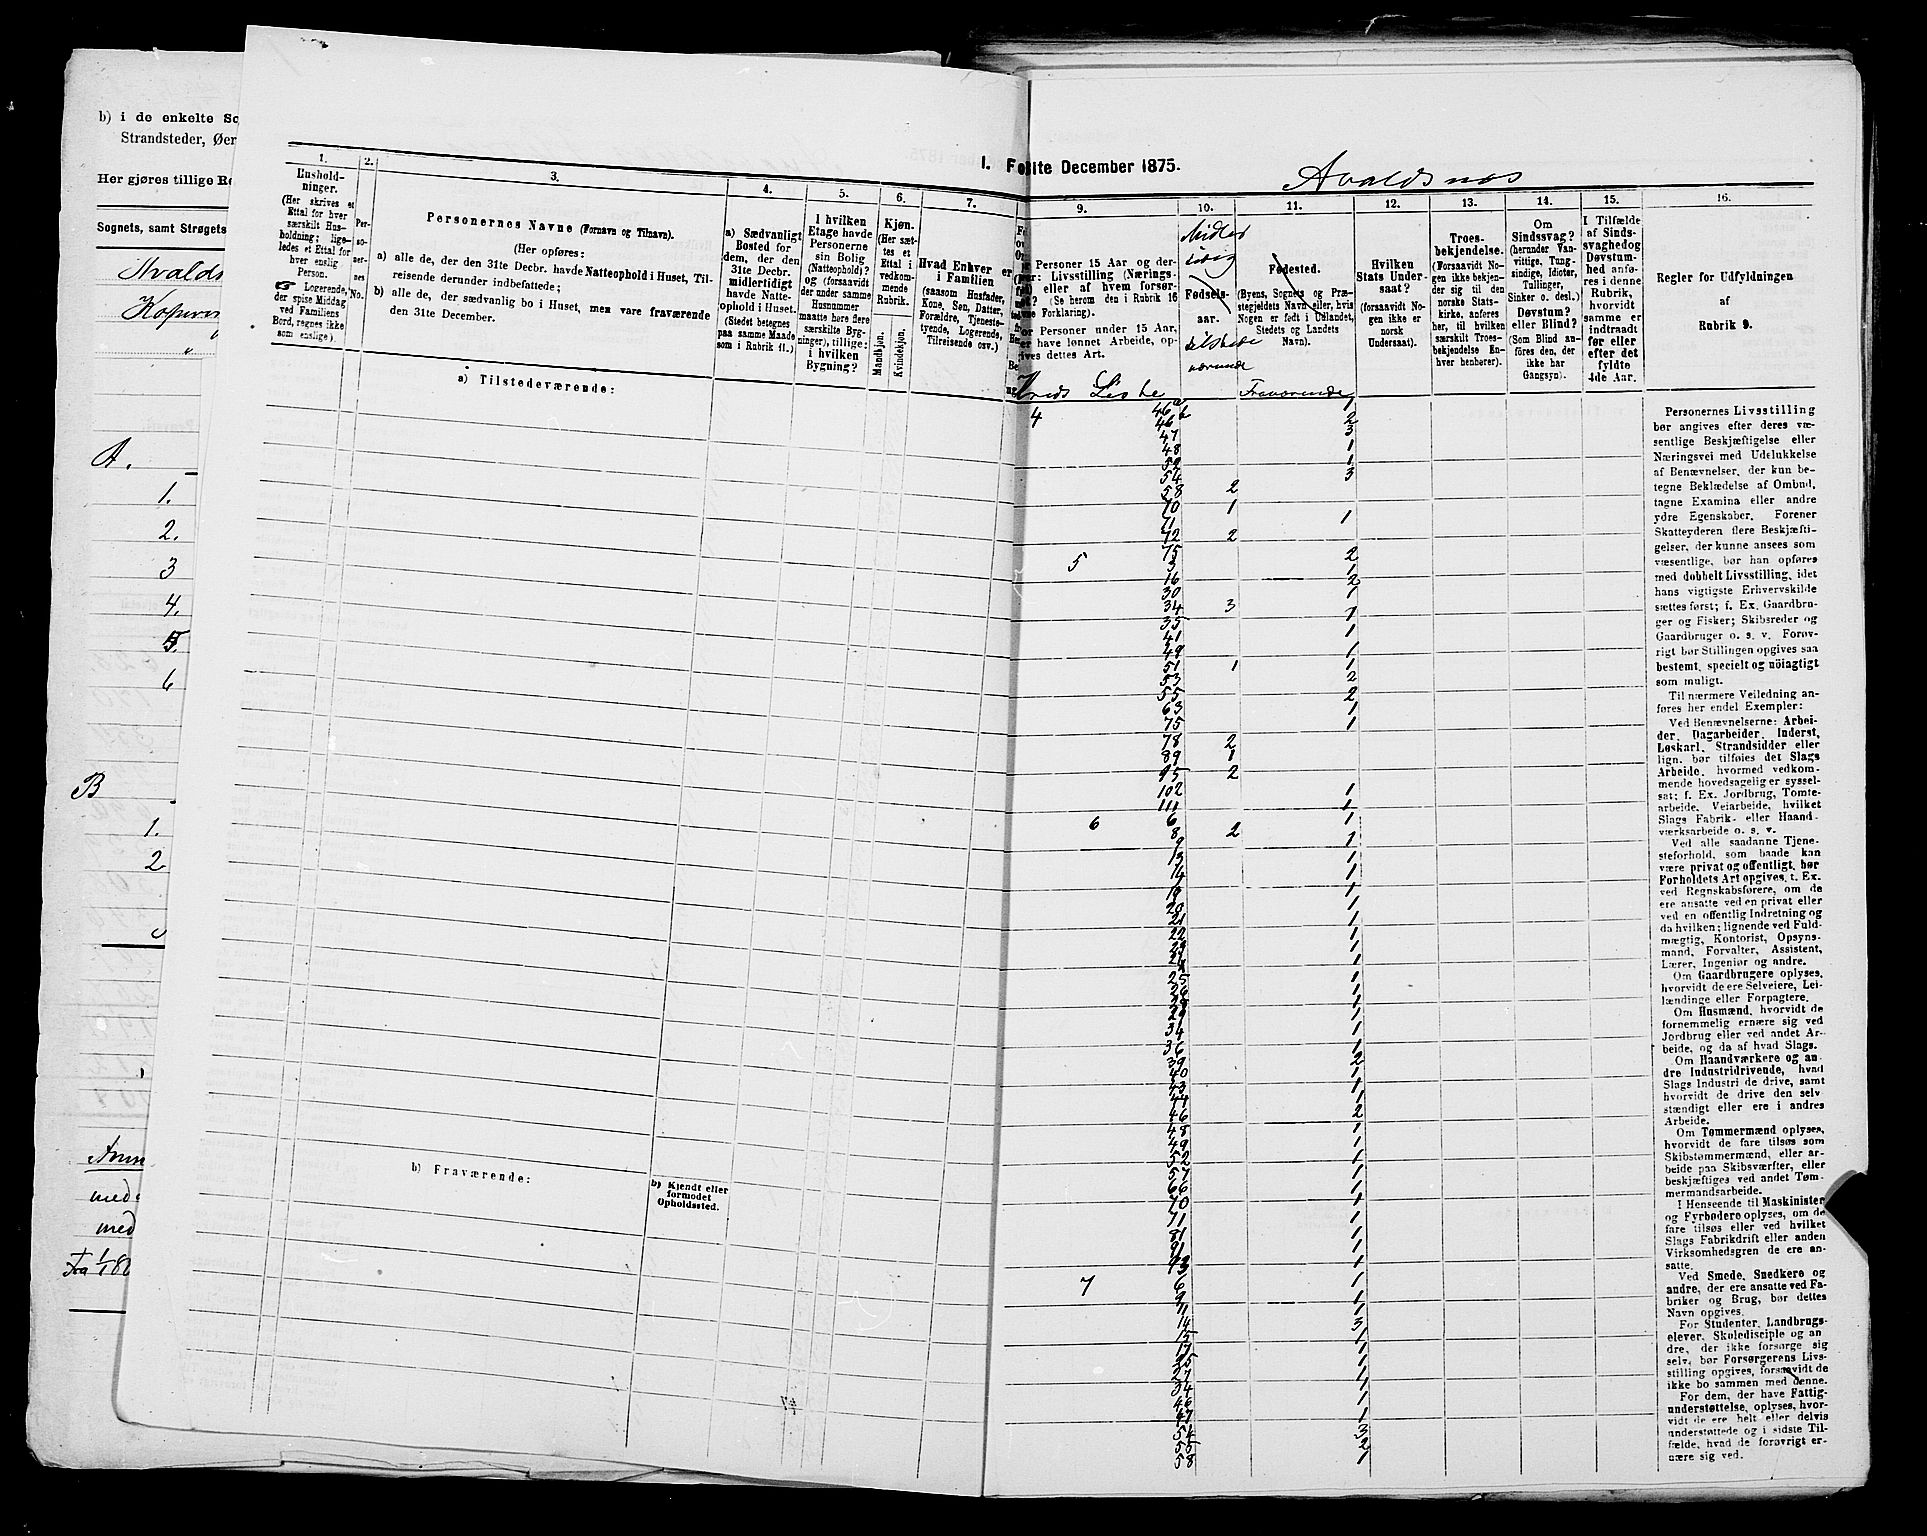 b) i de enkelte So
Strandsteder, Øer
Her gjøres tillige Re
Sognets, samt Strøgets
Avalds
Kopervi
"
A.
1.
2.
3
4.
5.
6
B
1.
2
med
med
1. Fo
1.
Hushold-
ninger.
(Her skrives et
Ettal for hver
særskilt Hus-
holdning; lige-
ledes et Ettal for
hver enslig
Person.
☞ Logerende,
der spise Middag
ved Familiens
Bord, regnes ikke
som enslige).
2.
Per-
so-
ner-
nes
No.
3.
Personernes Navne (Fornavn og Tilnavn).
(Her opføres:
a) alle de, der den 31te Decbr. havde Natteophold i Huset, Til-
reisende derunder indbefattede;
b) alle de, der sædvanlig bo i Huset, men vare fraværende
den 31te December.
4.
a) Sædvanligt
Bosted for
dem, der den
31te Decbr.
midlertidigt
havde Natte-
ophold i Huset.
(Stedet betegnes
paa samme Maade
som i Rubrik 11.)
5.
I hvilken
Etage havde
Personerne
sin Bolig
(Natteophold)?
og (forsaavidt
der under samme
Husnummer
maatte høre flere
særskilte Byg-
ninger), tillige:
i hvilken
Bygning?
6.
Kjøn.
(Her sæt-
tes et
Ettal i
vedkom-
mende
Rubrik.
Mandkjøn.
Kvindekjøn.
7.
Hvad Enhver er
i Familien
(saasom Husfader,
Kone, Søn, Datter,
Forældre, Tjeneste-
tyende, Logerende,
Tilreisende osv.)
a) Tilstedeværende:
b) Fraværende:
b) Kjendt eller
formodet
Opholdssted.
lte December 1875.
Avaldsnes
9.
Personer 15 Aar og der-
Livsstilling (Nærings-
eller af hvem forsør-
(Se herom den i Rubrik 16
Forklaring).
Personer under 15 Aar,
have lønnet Arbeide, op-
gives dettes Art.
10.
Midler
tidig
Fødsels-
aar.
tilstede
værende
11.
Fødested.
(Byens, Sognets og Præ-
stegjeldets Navn eller, hvis
Nogen er født i Udlandet,
Stedets og Landets
Navn).
Fraværende
12.
Hvilken
Stats Under-
saat?
(forsaavidt No-
gen ikke er
norsk
Undersaat).
13.
Troes-
bekjendelse.
(Forsaavidt No-
gen ikke bekjen-
der sig til den
norske Stats-
kirke, anføres
her, til hvilken
særskilt Troes-
bekjendelse En-
hver henhører).
14.
Om
Sindssvag?
(herunder Van-
vittige, Tung-
sindige, Idioter,
Tullinger,
Sinker o. desl.)
Døvstum?
eller Blind?
(Som Blind an-
føres den, der
ikke har
Gangsyn).
15.
I Tilfælde
af Sinds-
svaghed og
Døvstum-
hed anfø-
res i denne
Rubrik,
hvorvidt
samme er
indtraadt
før eller
efter det
fyldte
4de Aar.
16.
Regler for Udfyldningen
af
Rubrik 9.
Kreds Liste
4 46 a 1
46 b 2
47 3
48 1
52 1
54 3
58 2
70 1
71 1
72 2
75 2
5 3 1
16 2
30 1
34 3
35 1
41 1
49 1
51 1 1
53 2
55 2
63 1
75 1
78 2
89 1
95 2
102 1
111 1
6 6 1
8 2
9 1
13 1
14 1
18 1
20 1
21 1
22 1
23 1
24 1
25 1
26 1
28 1
29 1
34 1
36 1
39 2
40 1
43 1
44 1
46 2
48 1
49 1
52 1
57 1
66 1
70 1
71 1
81 1
91 1
93 1
7 6 1
9 1
11 1
14 3
15 1
17 1
25 1
27 1
34 1
46 1
47 1
54 3
55 2
58 1
Personernes Livsstilling
bør angives efter deres væ-
sentlige Beskjæftigelse eller
Næringsvei med Udelukkelse
af Benævnelser, der kun be-
tegne Beklædelse af Ombud,
tagne Examina eller andre
ydre Egenskaber. Forener
Skatteyderen flere Beskjæfti-
gelser, der kunne ansees som
væsentlige, bør han opføres
med dobbelt Livsstilling, idet
hans vigtigste Erhvervskilde
sættes først; f. Ex. Gaardbru-
ger og Fisker; Skibsreder og
Gaardbruger o. s. v. Forøv-
rigt bør Stillingen opgives saa
bestemt, specielt og nöiagtigt
som muligt.
Til nærmere Veiledning an-
føres her endel Exempler:
Ved Benævnelserne: Arbei-
der, Dagarbeider, Inderst,
Løskarl, Strandsidder eller
lign. bør tilføies det Slags
Arbeide, hvormed vedkom-
mende hovedsagelig er syssel-
sat; f. Ex. Jordbrug, Tomte-
arbeide, Veiarbeide, hvilket
Slags Fabrik- eller Haand-
værksarbeide o. s. v.
Ved alle saadanne Tjene-
steforhold, som baade kan
være privat og offentligt, bør
Forholdets Art opgives, t. Ex.
ved Regnskabsførere, om de
ere ansatte ved en privat eller
ved en offentlig Indretning og
da hvilken; lignende ved Fuld-
mægtig, Kontorist, Opsyns-
mand, Forvalter, Assistent,
Lærer, Ingeniør og andre.
Om Gaardbrugere oplyses,
hvorvidt de ere Selveiere, Lei-
lændinge eller Forpagtere.
Om Husmænd, hvorvidt de
fornemmelig ernære sig ved
Jordbrug eller ved andet Ar-
beide, og da af hvad Slags.
Om Haandværkere og an-
dre Industridrivende, hvad
Slags Industri de drive, samt
hvorvidt de drive den selv-
stændigt eller ere i andres
Arbeide.
Om Tømmermænd oplyses,
hvorvidt de fare tilsøs som
Skibstømmermænd, eller ar-
beide paa Skibsværfter, eller
beskjæftiges ved andet Tøm-
mermandsarbeide.
I Henseende til Maskinister
og Fyrbødere oplyses, om de
fare tilsøs eller ved hvilket
Slags Fabrikdrift eller anden
Virksomhedsgren de ere an-
satte.
Ved Smede, Snedkere og
andre, der ere ansatte ved Fa-
briker og Brug, bør dettes
Navn opgives.
For Studenter, Landbrugs-
elever, Skoledisciple og an
dre, der ikke forsørge sig
selv, bør Forsørgerens Livs-
stilling opgives, forsaavidt de
ikke bo sammen med denne.
For dem, der have Fattig-
understøttelse, oplyses, hvor-
vidt de ere helt eller delvis
understøttede og i sidste Til-
fælde, hvad de forøvrigt er-
nære sig ved.